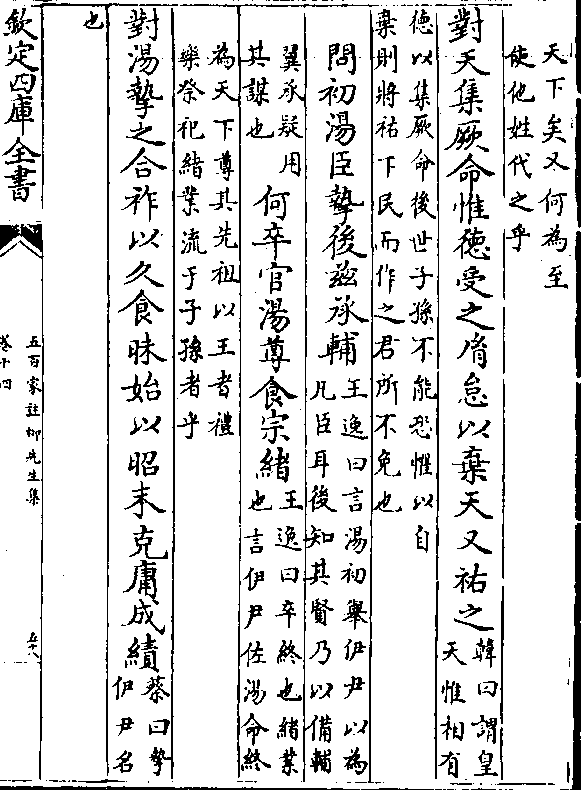 天下矣又何為至
使他姓代之乎
對天集厥命惟德受之胤怠以棄天又祐之韓曰謂皇
天惟相有
德以集厥命後世子孫不能恐惟以自
棄則將祐下民而作之君所不免也
問初湯臣摯後茲承輔王逸曰言湯初舉伊尹以為
凡臣耳後知其賢乃以備輔
翼承疑用
其謀也
何卒官湯尊食宗緒王逸曰卒終也緒業
也言伊尹佐湯命終
為天下尊其先祖以王者禮
樂祭祀緒業流于子孫者乎
對湯摯之合祚以久食昧始以昭末克庸成績蔡曰摯
伊尹名
也
欽定四庫全書
五百家註柳先生集
卷十四
五十八